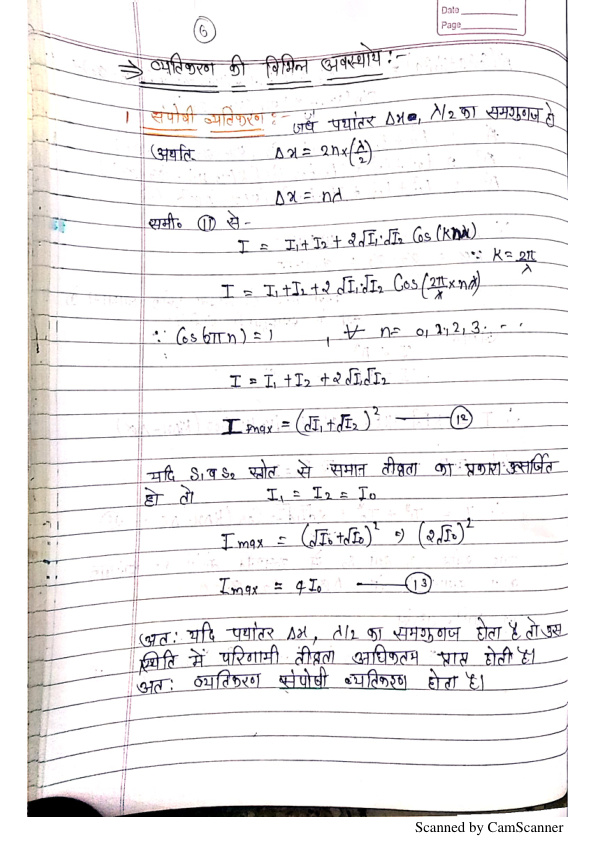 Date
Page
6
⇒ व्यतिकरण की विभिन्न अवस्थाये :-
1 संपोषी व्यतिकरण :- जब पथांतर Δx, λ/2 का समगुणज हो
अर्थात Δx = 2n×(λ/2)
Δx = nλ
समी० (11) से -
I = I₁ + I₂ + 2√I₁.√I₂ Cos(KΔx)
∵ K = 2π/λ
I = I₁ + I₂ + 2√I₁.√I₂ Cos(2π/λ × nλ)
∵ Cos(2πn) = 1 , ∀ n = 0, 1, 2, 3. - -
I = I₁ + I₂ + 2√I₁√I₂
I max = (√I₁ + √I₂)² —— (12)
यदि S₁ व S₂ स्रोत से समान तीव्रता का प्रकाश उत्सर्जित
हो तो I₁ = I₂ = I₀
I max = (√I₀ + √I₀)² ⇒ (2√I₀)²
I max = 4I₀ —— (13)
अतः यदि पथांतर Δx, λ/2 का समगुणज होता है तो उस
स्थिति में परिणामी तीव्रता अधिकतम प्राप्त होती है।
अतः व्यतिकरण संपोषी व्यतिकरण होता है।
Scanned by CamScanner